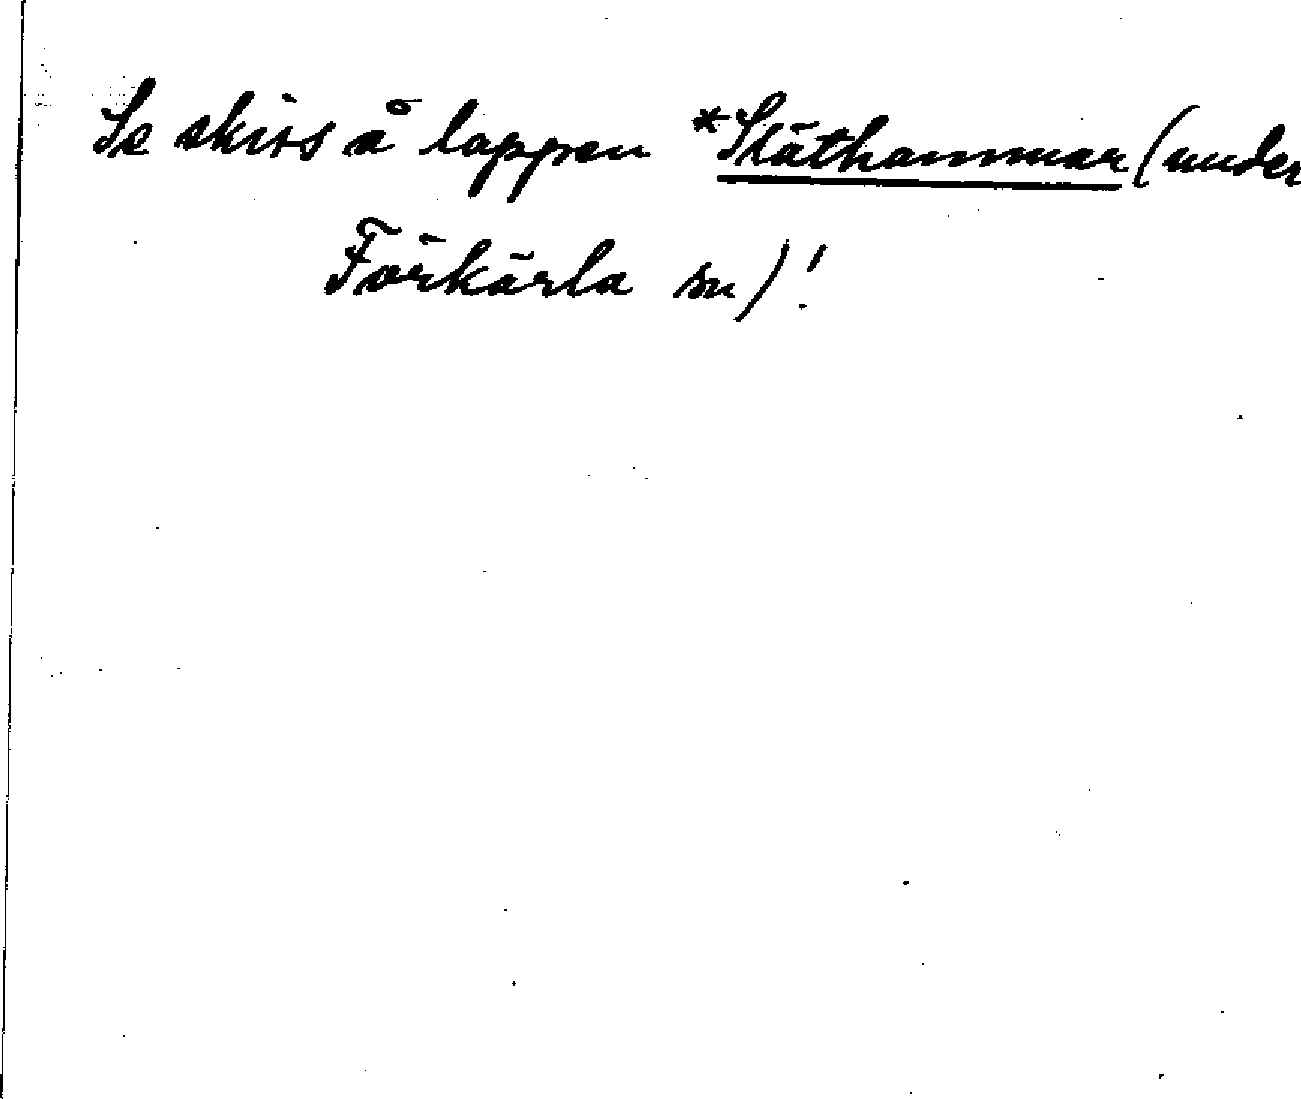 Se skiss å lappen *Släthammar (under
Förkärla sn)!